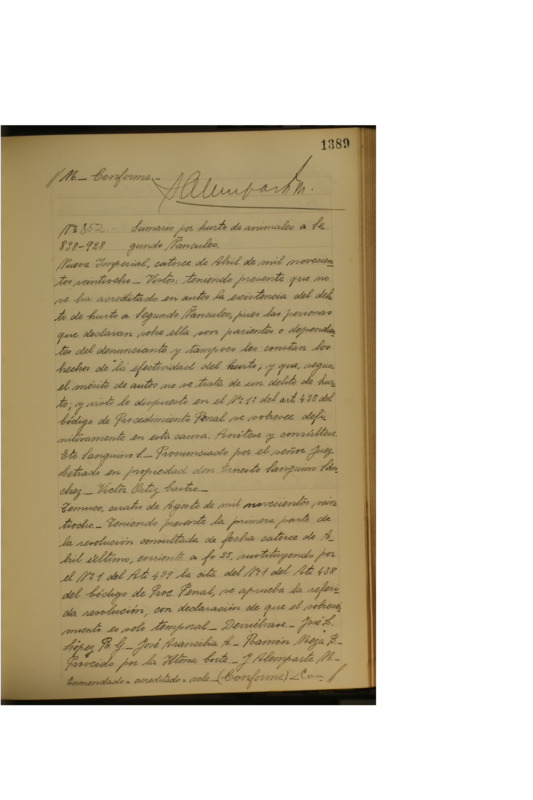 1389
M. — Conforme. —
J. Alemparte M.
Nº 352 Sumario por hurto de animales a Se
820-928 gundo Panculeo.
Nueva Imperial, catorce de Abril de mil novecien
tos veintiocho. — Vistos: teniendo presente que no
se ha acreditado en autos la existencia del deli
to de hurto a Segundo Panculeo, pues las personas
que declaran sobre ella son parientes o dependien
tes del denunciante y tampoco les constan los
hechos de la efectividad del hurto; y que, segun
el mérito de autos no se trata de un delito de hur
to; y visto lo dispuesto en el Nº 1º del art 438 del
Código de Procedimiento Penal se sobresee defi
nitivamente en esta causa. Anótese y consúltese.
Eto Sanguino S. — Pronunciado por el señor Juez
Letrado en propiedad don Ernesto Sanguino Sán
chez — Victor Ortiz Castro. —
Temuco, cuatro de Agosto de mil novecientos vein
tiocho. — Teniendo presente la primera parte de
la resolución consultada de fecha catorce de A
bril último, corriente a fs 25, sustituyendo por
el Nº 1 del Art 439 la cita del Nº 1 del Art 438
del Código de Proc Penal, se aprueba la referi
da resolución, con declaración de que el sobresei
miento es solo temporal. — Devuélvase. — José L.
López R. G. — José Arancibia A. — Ramón Meza B. —
Proveído por la Iltma Corte. — J. Alemparte M. —
Enmendado = acreditado = vale — (Conforme)